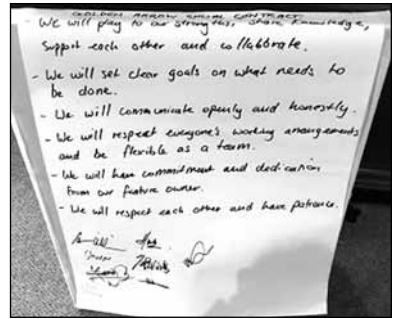 GOLDEN ARROW SOCIAL CONTRACT
- We will play to our strengths, share knowledge,
support each other and collaborate.
- We will set clear goals on what needs to
be done.
- We will communicate openly and honestly.
- We will respect everyone's working arrangements
and be flexible as a team.
- We will have commitment and dedication
from our feature owner.
- We will respect each other and have patience.